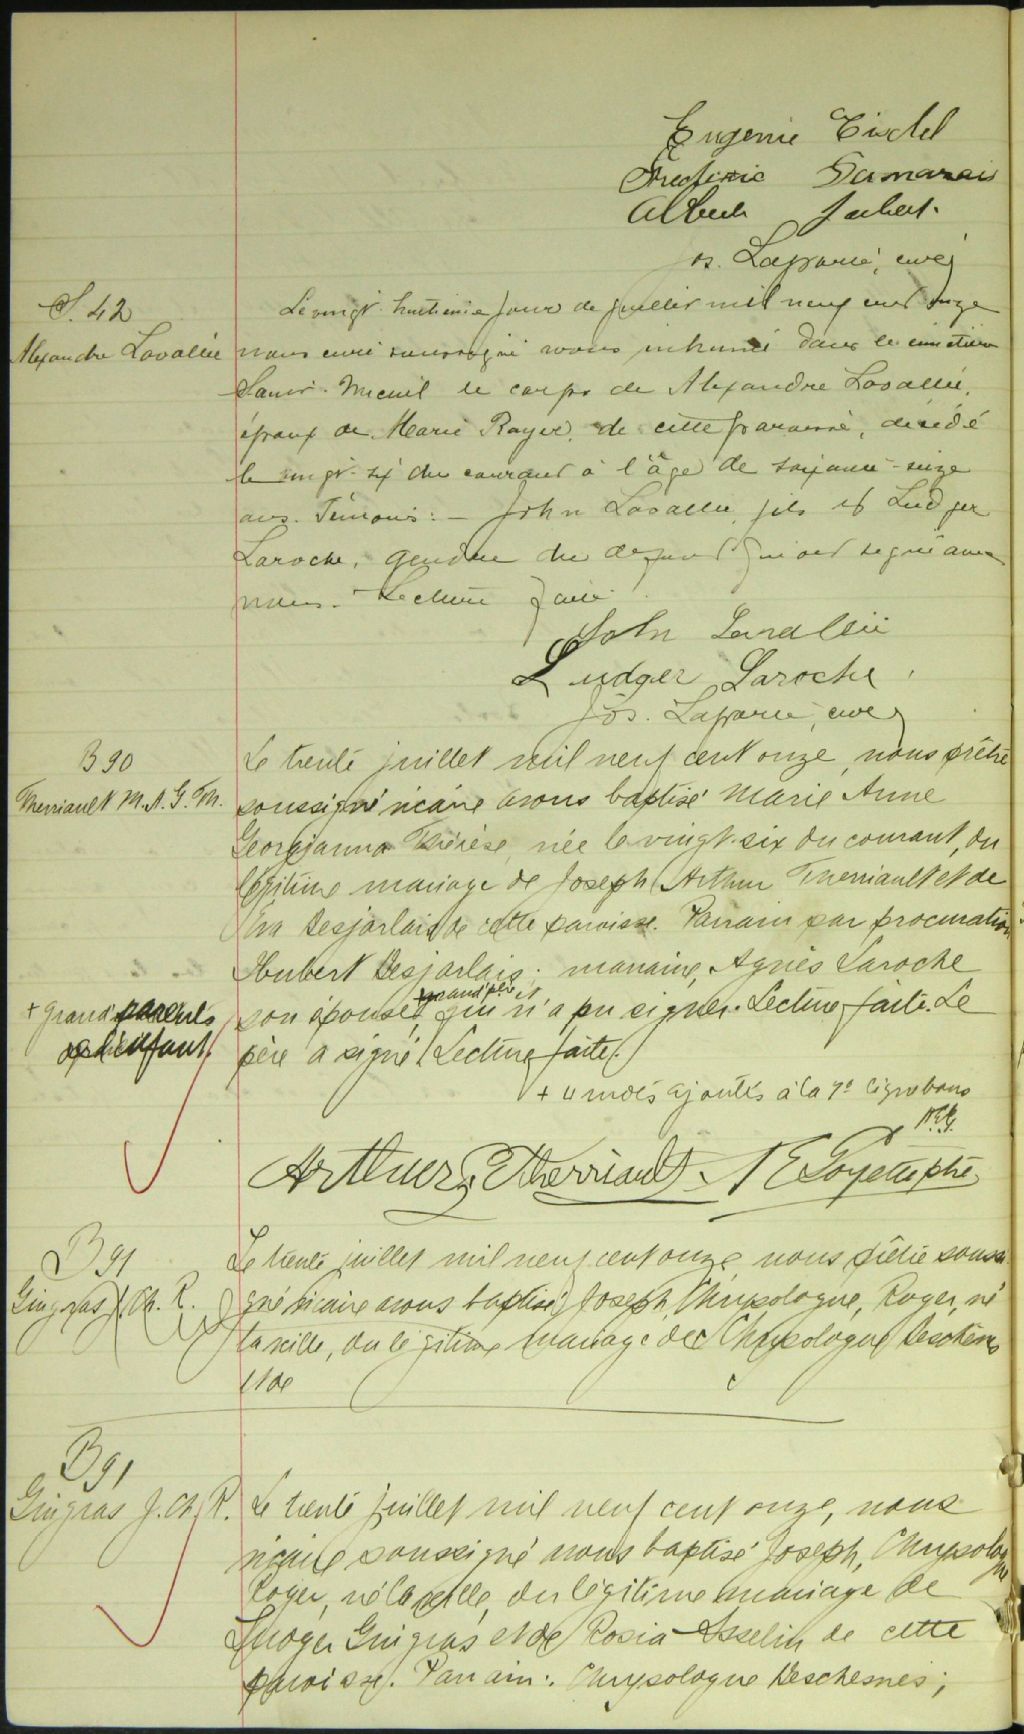 Eugenie
Frederic
Albert
Jos. Laporte, curé
S. 42
Alexandre Lavallée
Le vingt-huitième jour de juillet mil neuf cent onze
nous curé soussigné avons inhumé dans le cimetière
Saint-Michel le corps de Alexandre Lavallée,
époux de Marie Royer, de cette paroisse, décédé
le vingt-six du courant à l'âge de soixante-seize
ans. Témoins: — John Lavallée, fils et Ludger
Laroche, gendre du défunt qui ont signé avec
nous. Lecture faite.
John Lavallée
Ludger Laroche
Jos. Laporte, curé
B 90
Therriault M. A. G. Th.
Le trente juillet mil neuf cent onze, nous prêtre
soussigné vicaire avons baptisé Marie Anne
Georgianna Thérèse, née le vingt-six du courant, du
légitime mariage de Joseph Arthur Therriault et de
Eva Desjarlais de cette paroisse. Parrain par procuration
Hubert Desjarlais; marraine, Agnès Laroche
+ grand'père et
son épouse, qui n'a pu signer. Lecture faite. Le
père a signé (Lecture faite).
+ grand parents
de l'enfant.
+ 4 mots ajoutés à la 7e ligne bons
N.E.G.
Arthur Therriault N E Goyette ptre
B 91
Gingras J. Ch. R.
Le trente juillet mil neuf cent onze nous prêtre soussi
gné vicaire avons baptisé Joseph, Chrysologue, Roger, né
la veille, du légitime mariage de Chrysologue Deschênes
et de
B 91
Gingras J. Ch. R.
Le trente juillet mil neuf cent onze, nous
vicaire soussigné avons baptisé Joseph, Chrysologue
Roger, né la veille, du légitime mariage de
Gingras et de Rosia Asselin de cette
paroisse. Parrain: Chrysologue Deschesnes;